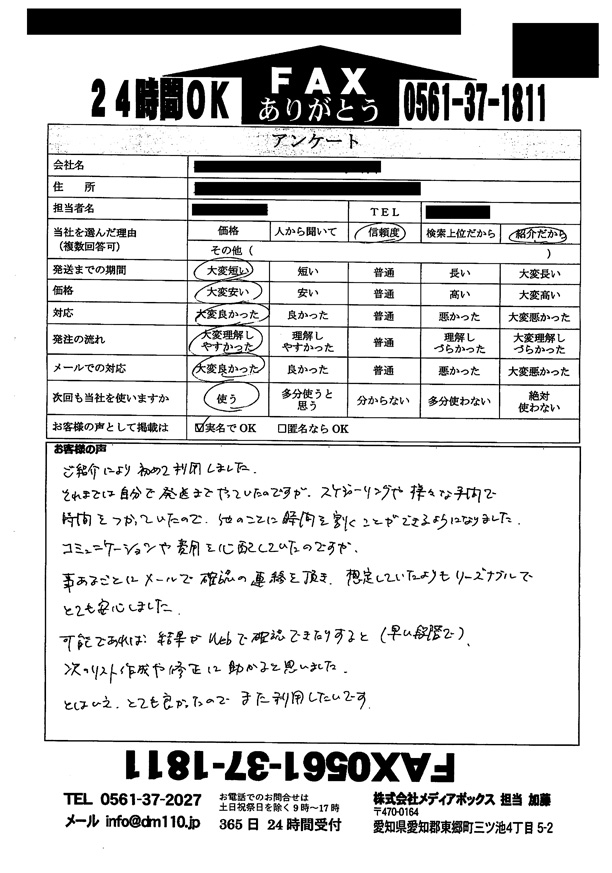 24時間OK
FAX
ありがとう
0561-37-1811
アンケート
会社名
住 所
担当者名 TEL
当社を選んだ理由 (複数回答可) 価格 人から聞いて 信頼度 検索上位だから 紹介だから
その他 ( )
発送までの期間 大変短い 短い 普通 長い 大変長い
価格 大変安い 安い 普通 高い 大変高い
対応 大変良かった 良かった 普通 悪かった 大変悪かった
発注の流れ 大変理解しやすかった 理解しやすかった 普通 理解しづらかった 大変理解しづらかった
メールでの対応 大変良かった 良かった 普通 悪かった 大変悪かった
次回も当社を使いますか 使う 多分使うと思う 分からない 多分使わない 絶対使わない
お客様の声として掲載は ☑実名でOK □匿名ならOK
お客様の声
ご紹介により初めて利用しました。
それまでは自分で発送までやっていたのですが、スケジーリングや様々な手間で
時間をつかっていたので、他のことに時間を割くことができるようになりました。
コミュニケーションや費用を心配していたのですが、
事あるごとにメールで確認の連絡を頂き、想定していたよりもリーズナブルで
とても安心しました。
可能であれば、結果がWebで確認できたりすると(早い段階で)、
次のリスト作成や修正に助かると思いました。
とはいえ、とても良かったので また利用したいです。
FAX0561-37-1811
TEL 0561-37-2027
メール info@dm110.jp
お電話でのお問合せは
土日祝祭日を除く9時～17時
365日 24時間受付
株式会社メディアボックス 担当 加藤
〒470-0164
愛知県愛知郡東郷町三ツ池4丁目5-2